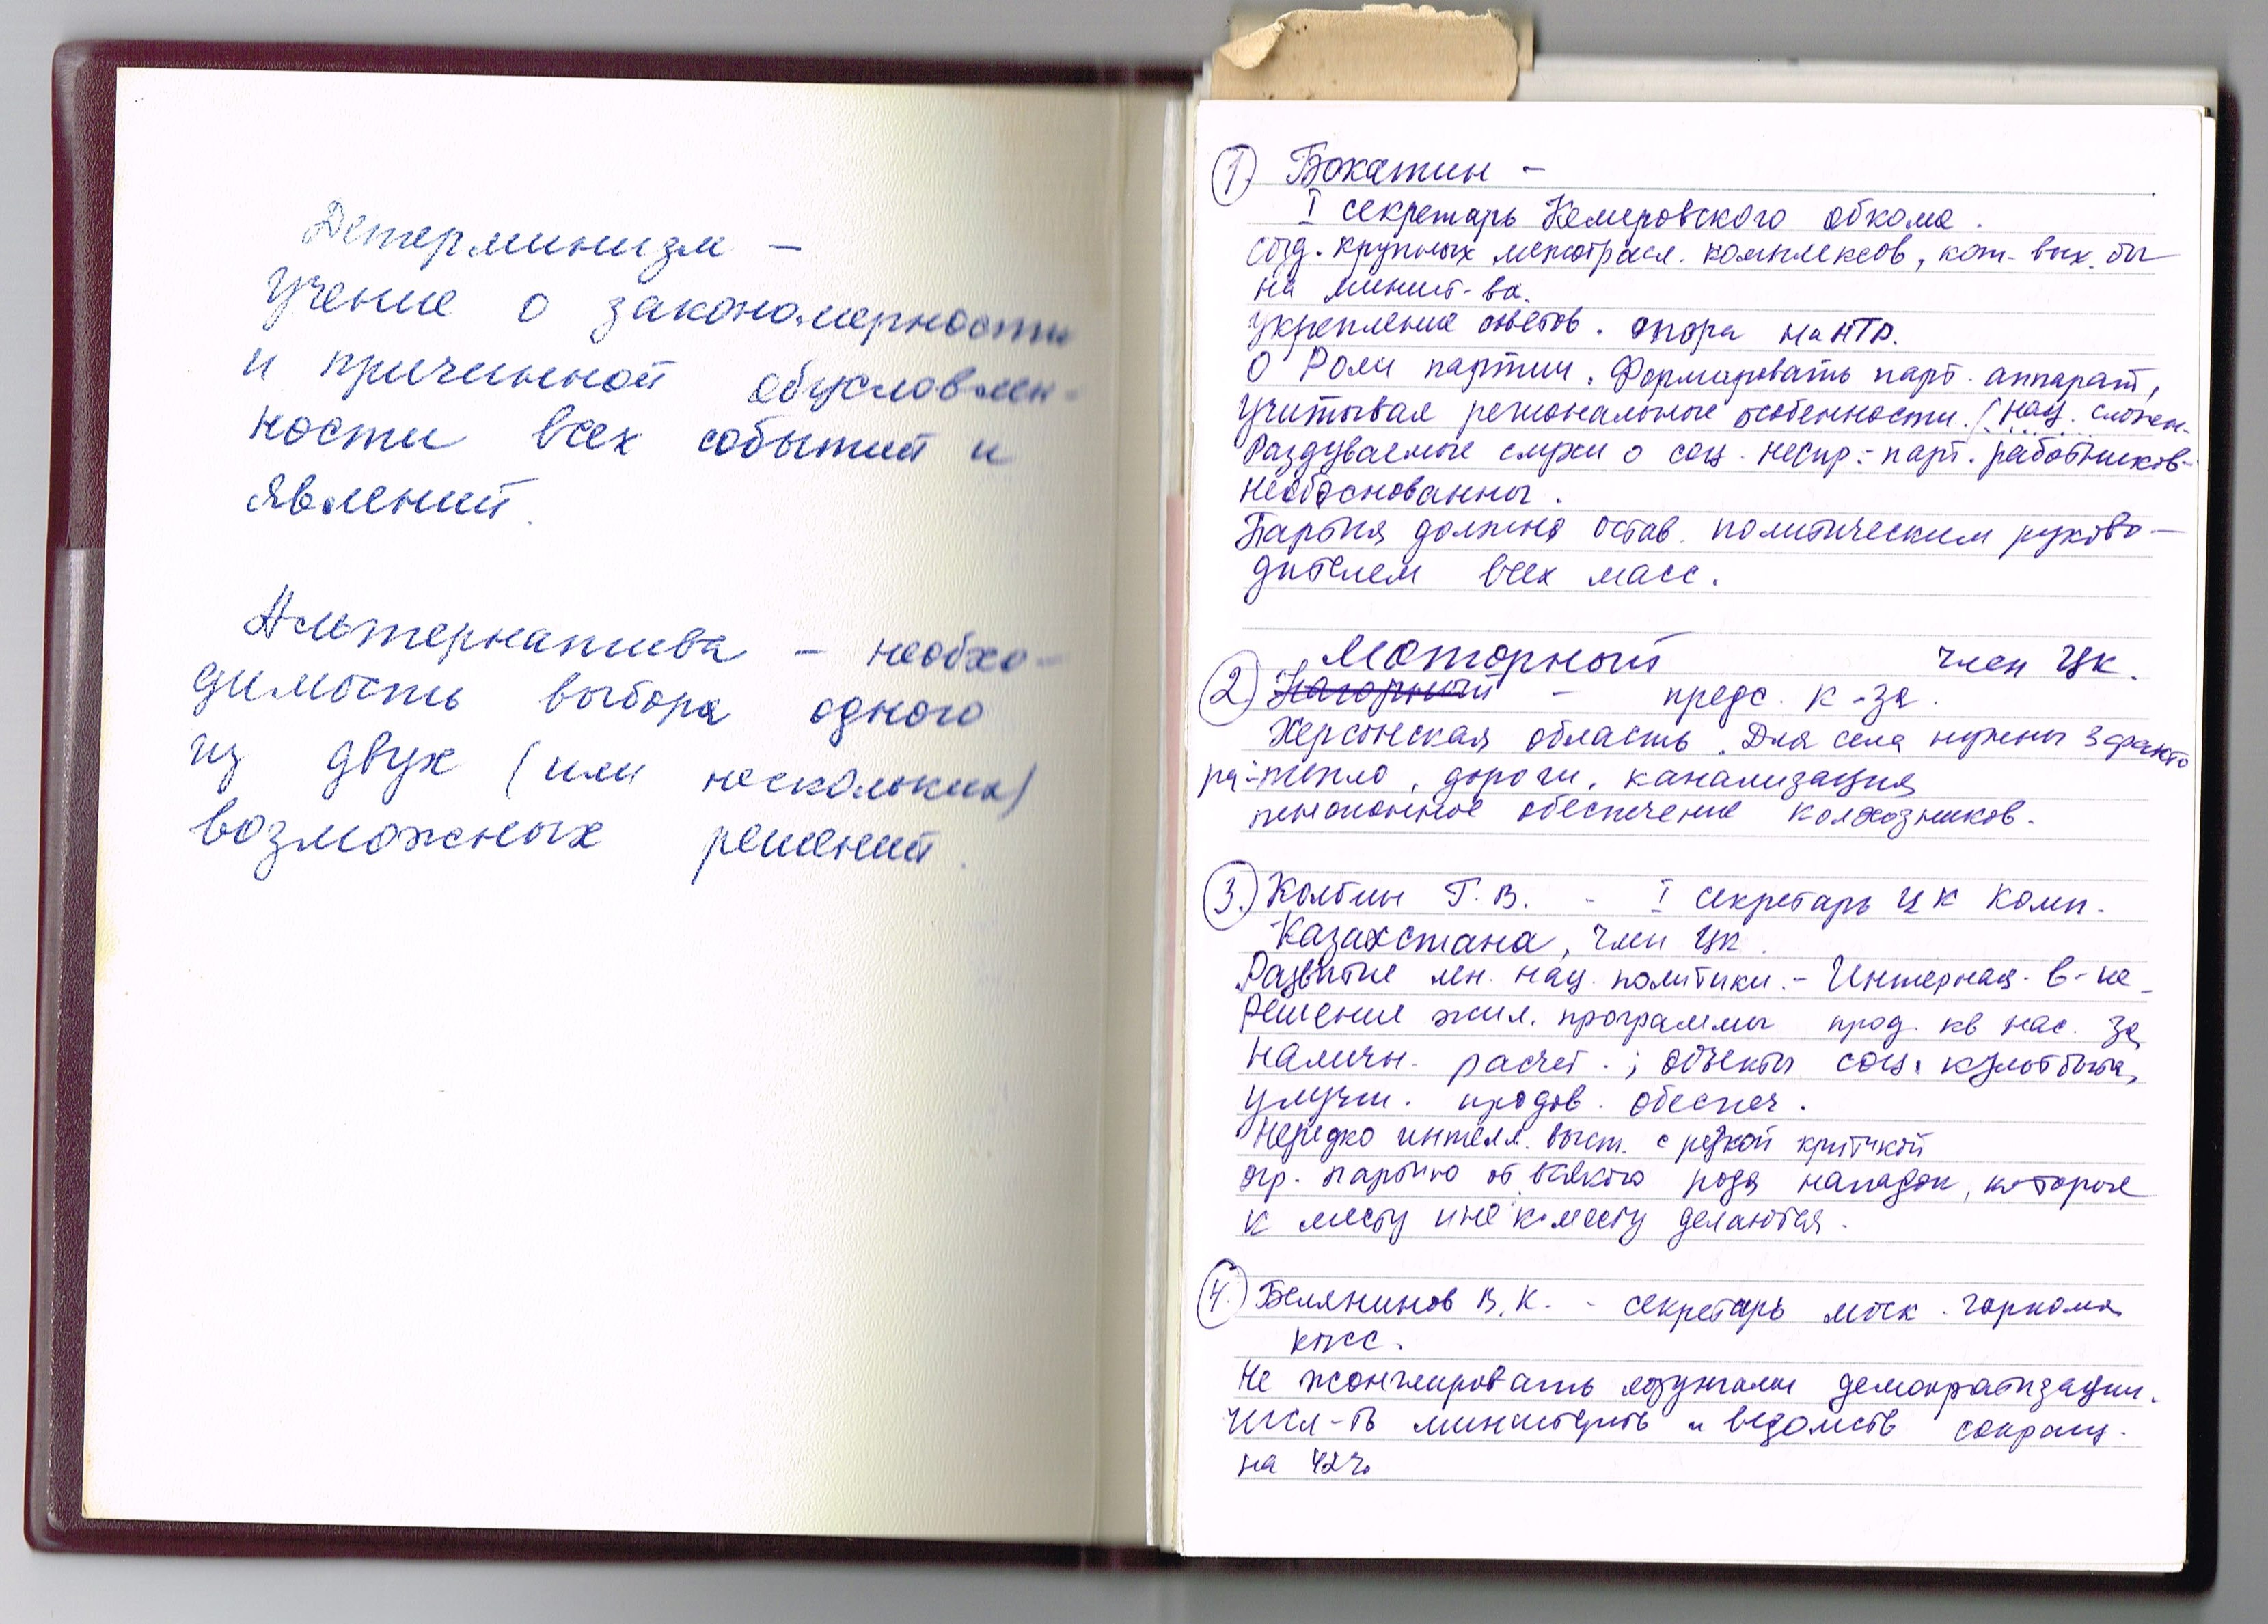 Детерминизм –
учение о закономерности
и причинной обусловлен-
ности всех событий и
явлений.
Альтернатива – необхо-
димость выбора одного
из двух (или нескольких)
возможных решений.
1. Бокатин –
I секретарь Кемеровского обкома.
созд. крупных межотрасл. комплексов, кот. вых. бы
на минист-ва.
укрепление советов. опора на НТР.
О Роли партии. Формировать парт. аппарат,
учитывая региональные особенности. (нац. сложен.
Раздуваемые слухи о соц. неспр: парт. работников-
необоснованны.
Партия должна остав. политическим руково-
дителем всех масс.
Моторный член ЦК.
2. Нагорный – предс. к-за.
Херсонская область. Для села нужны 3 факто
ра: тепло, дороги, канализация
пенсионное обеспечение колхозников.
3. Колбин Г.В. - I секретарь ЦК Комп.
Казахстана, член ЦК.
Развитие лен. нац. политики. - Интернац. в-ие
Решение жил. программы прод. кв нас. за
наличн. расчет.; объекты соц. культбыта,
улучш. продов. обеспеч.
Нередко интелл. выст. с резкой критикой
огр. партию от всякого рода нападок, которые
к месту и не к месту делаются.
4. Белянинов В.К. - секретарь моск. горкома
КПСС.
Не жонглировать лозунгами демократизации.
числ-ть министерств и ведомств сокращ.
на 42%